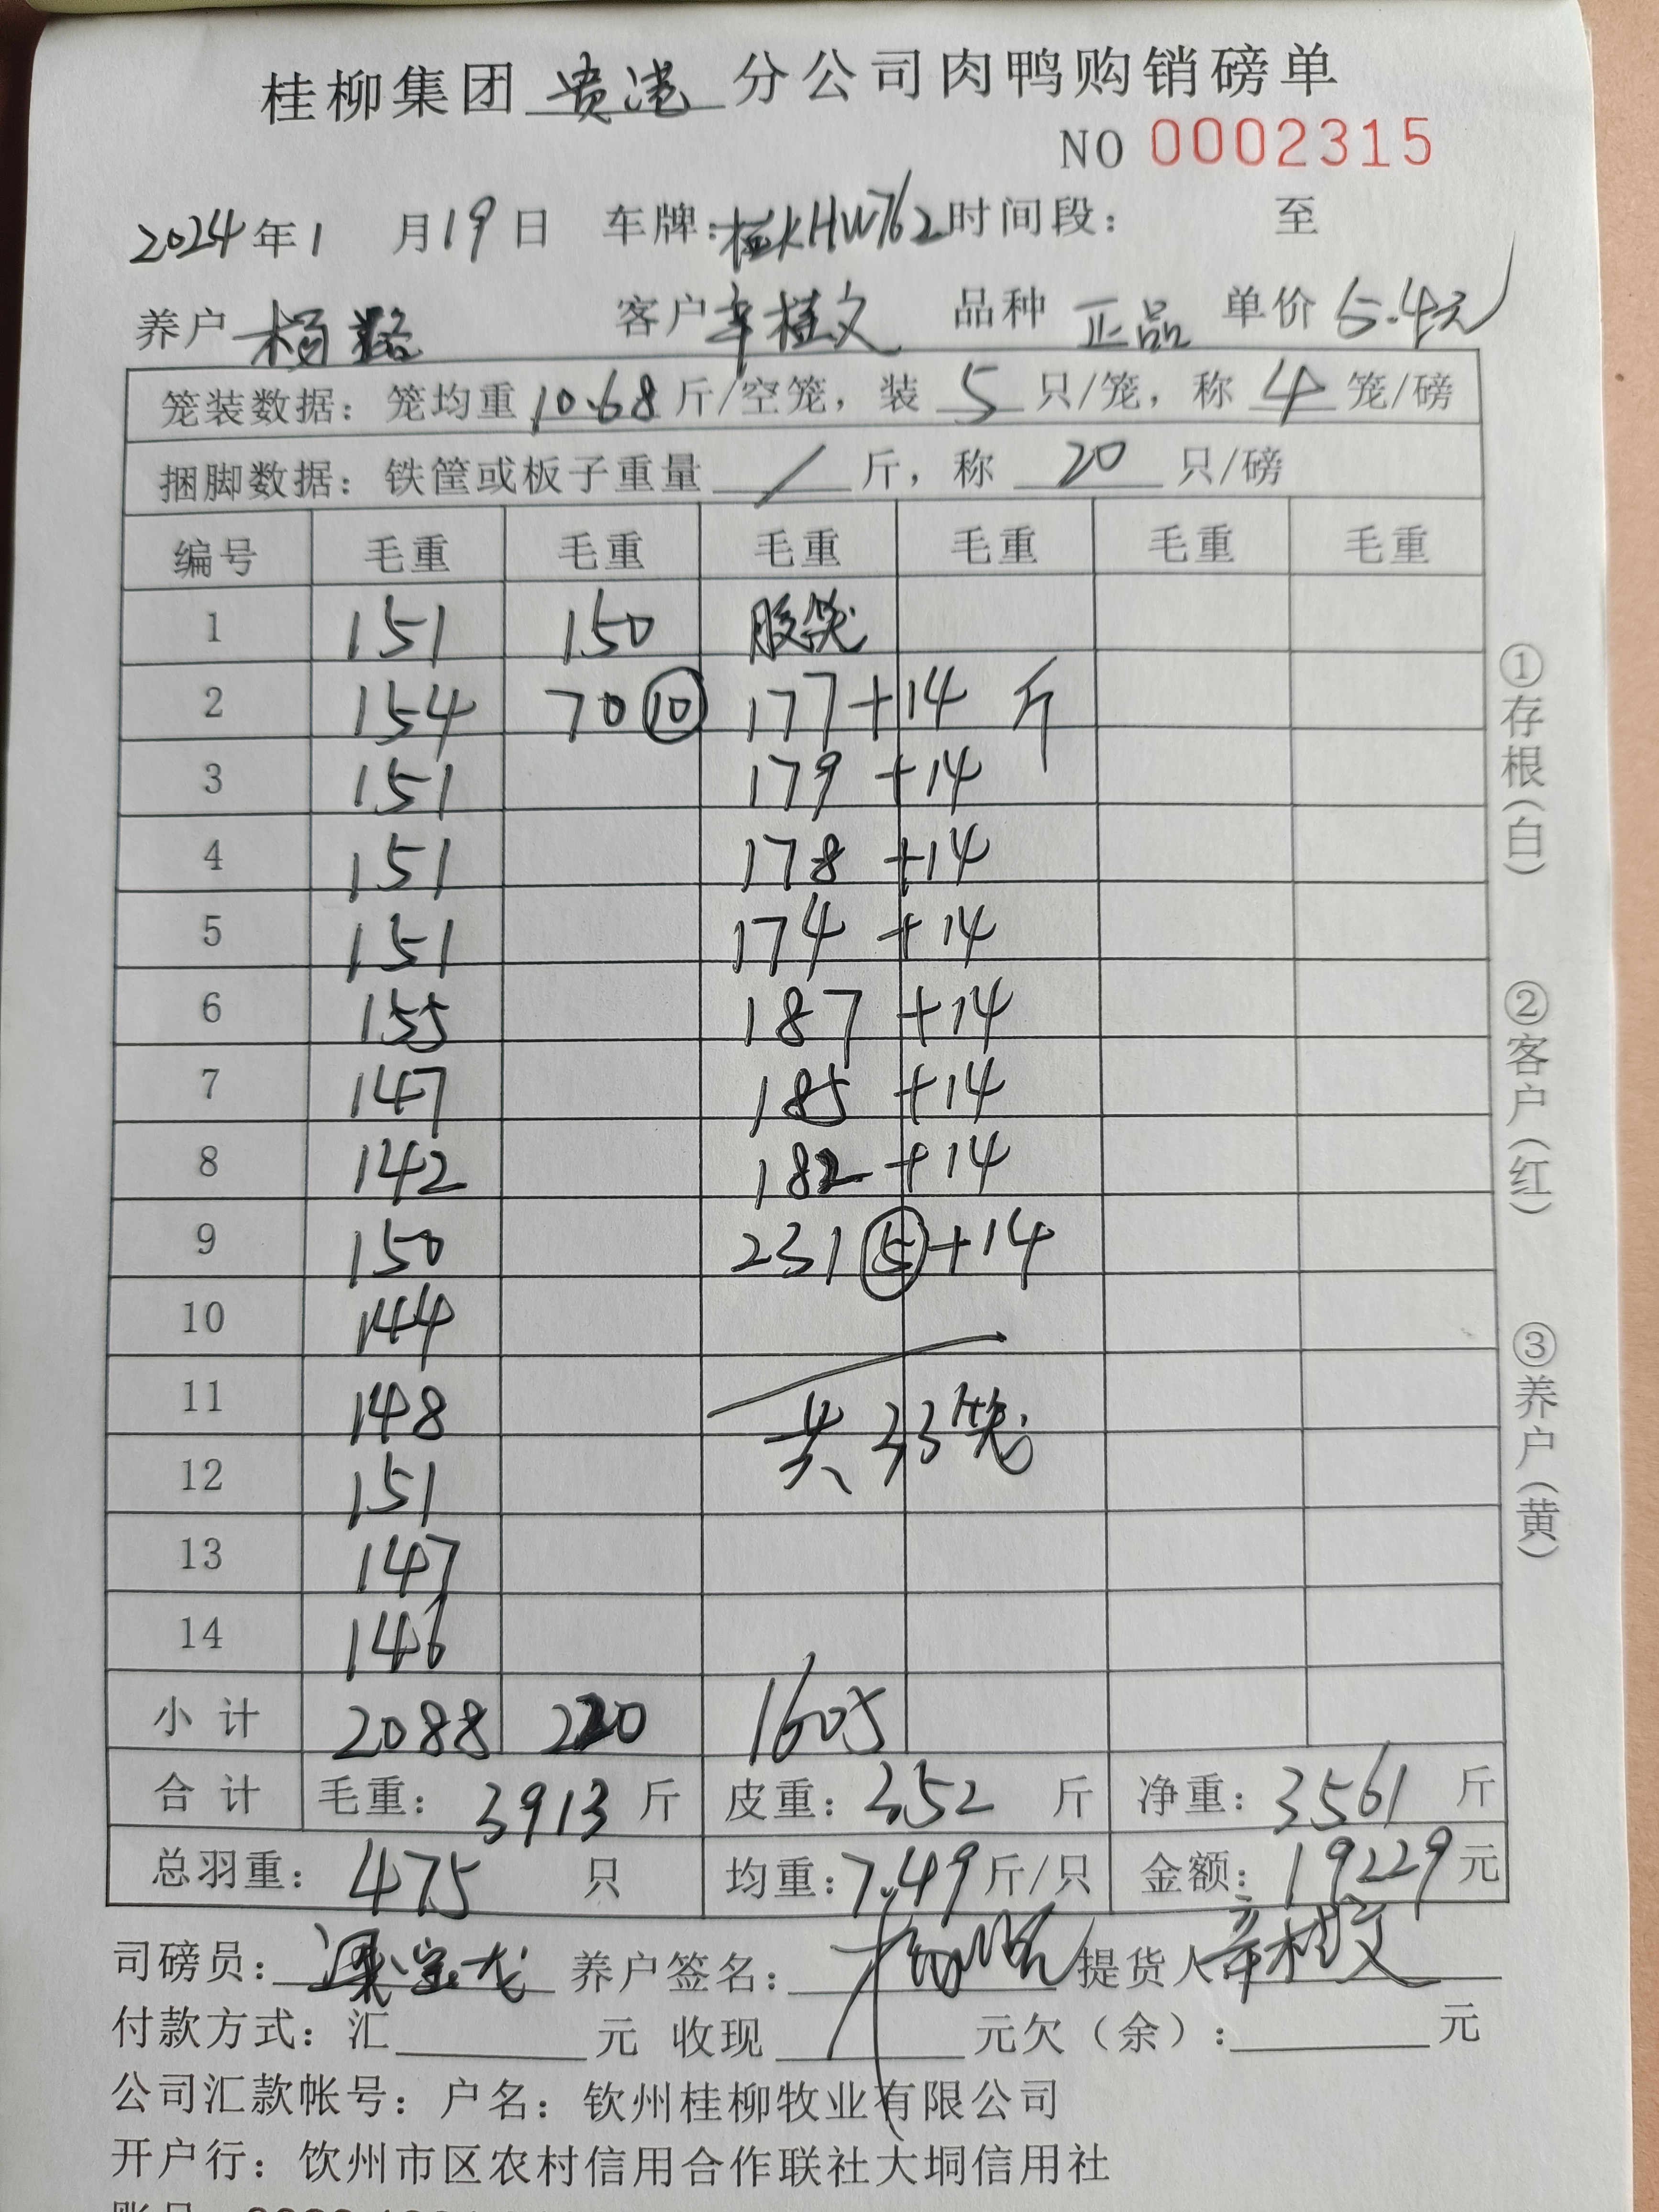 桂柳集团 贵港 分公司肉鸭购销磅单
NO 0002315
2024年1 月19日 车牌:桂KHW762时间段: 至
养户 客户 辛桂文 品种 正品 单价 5.4元
笼装数据: 笼均重 10.68 斤/空笼, 装 5 只/笼, 称 4 笼/磅
捆脚数据: 铁筐或板子重量 / 斤, 称 20 只/磅
编号 毛重 毛重 毛重 毛重 毛重 毛重
1 151 150 胶笼
2 154 70⑩ 177+14 斤
3 151 179+14
4 151 178+14
5 151 174+14
6 155 187+14
7 147 185+14
8 142 182+14
9 150 231⑤+14
10 144
11 148 共33笼
12 151
13 147
14 146
小计 2088 220 1605
合计 毛重: 3913 斤 皮重: 352 斤 净重: 3561 斤
总羽重: 475 只 均重: 7.49 斤/只 金额: 19229 元
司磅员: 养户签名: 提货人 辛桂文
付款方式: 汇 元 收现 元欠(余): 元
公司汇款帐号: 户名: 钦州桂柳牧业有限公司
开户行: 饮州市区农村信用合作联社大垌信用社
①存根(白)
②客户(红)
③养户(黄)